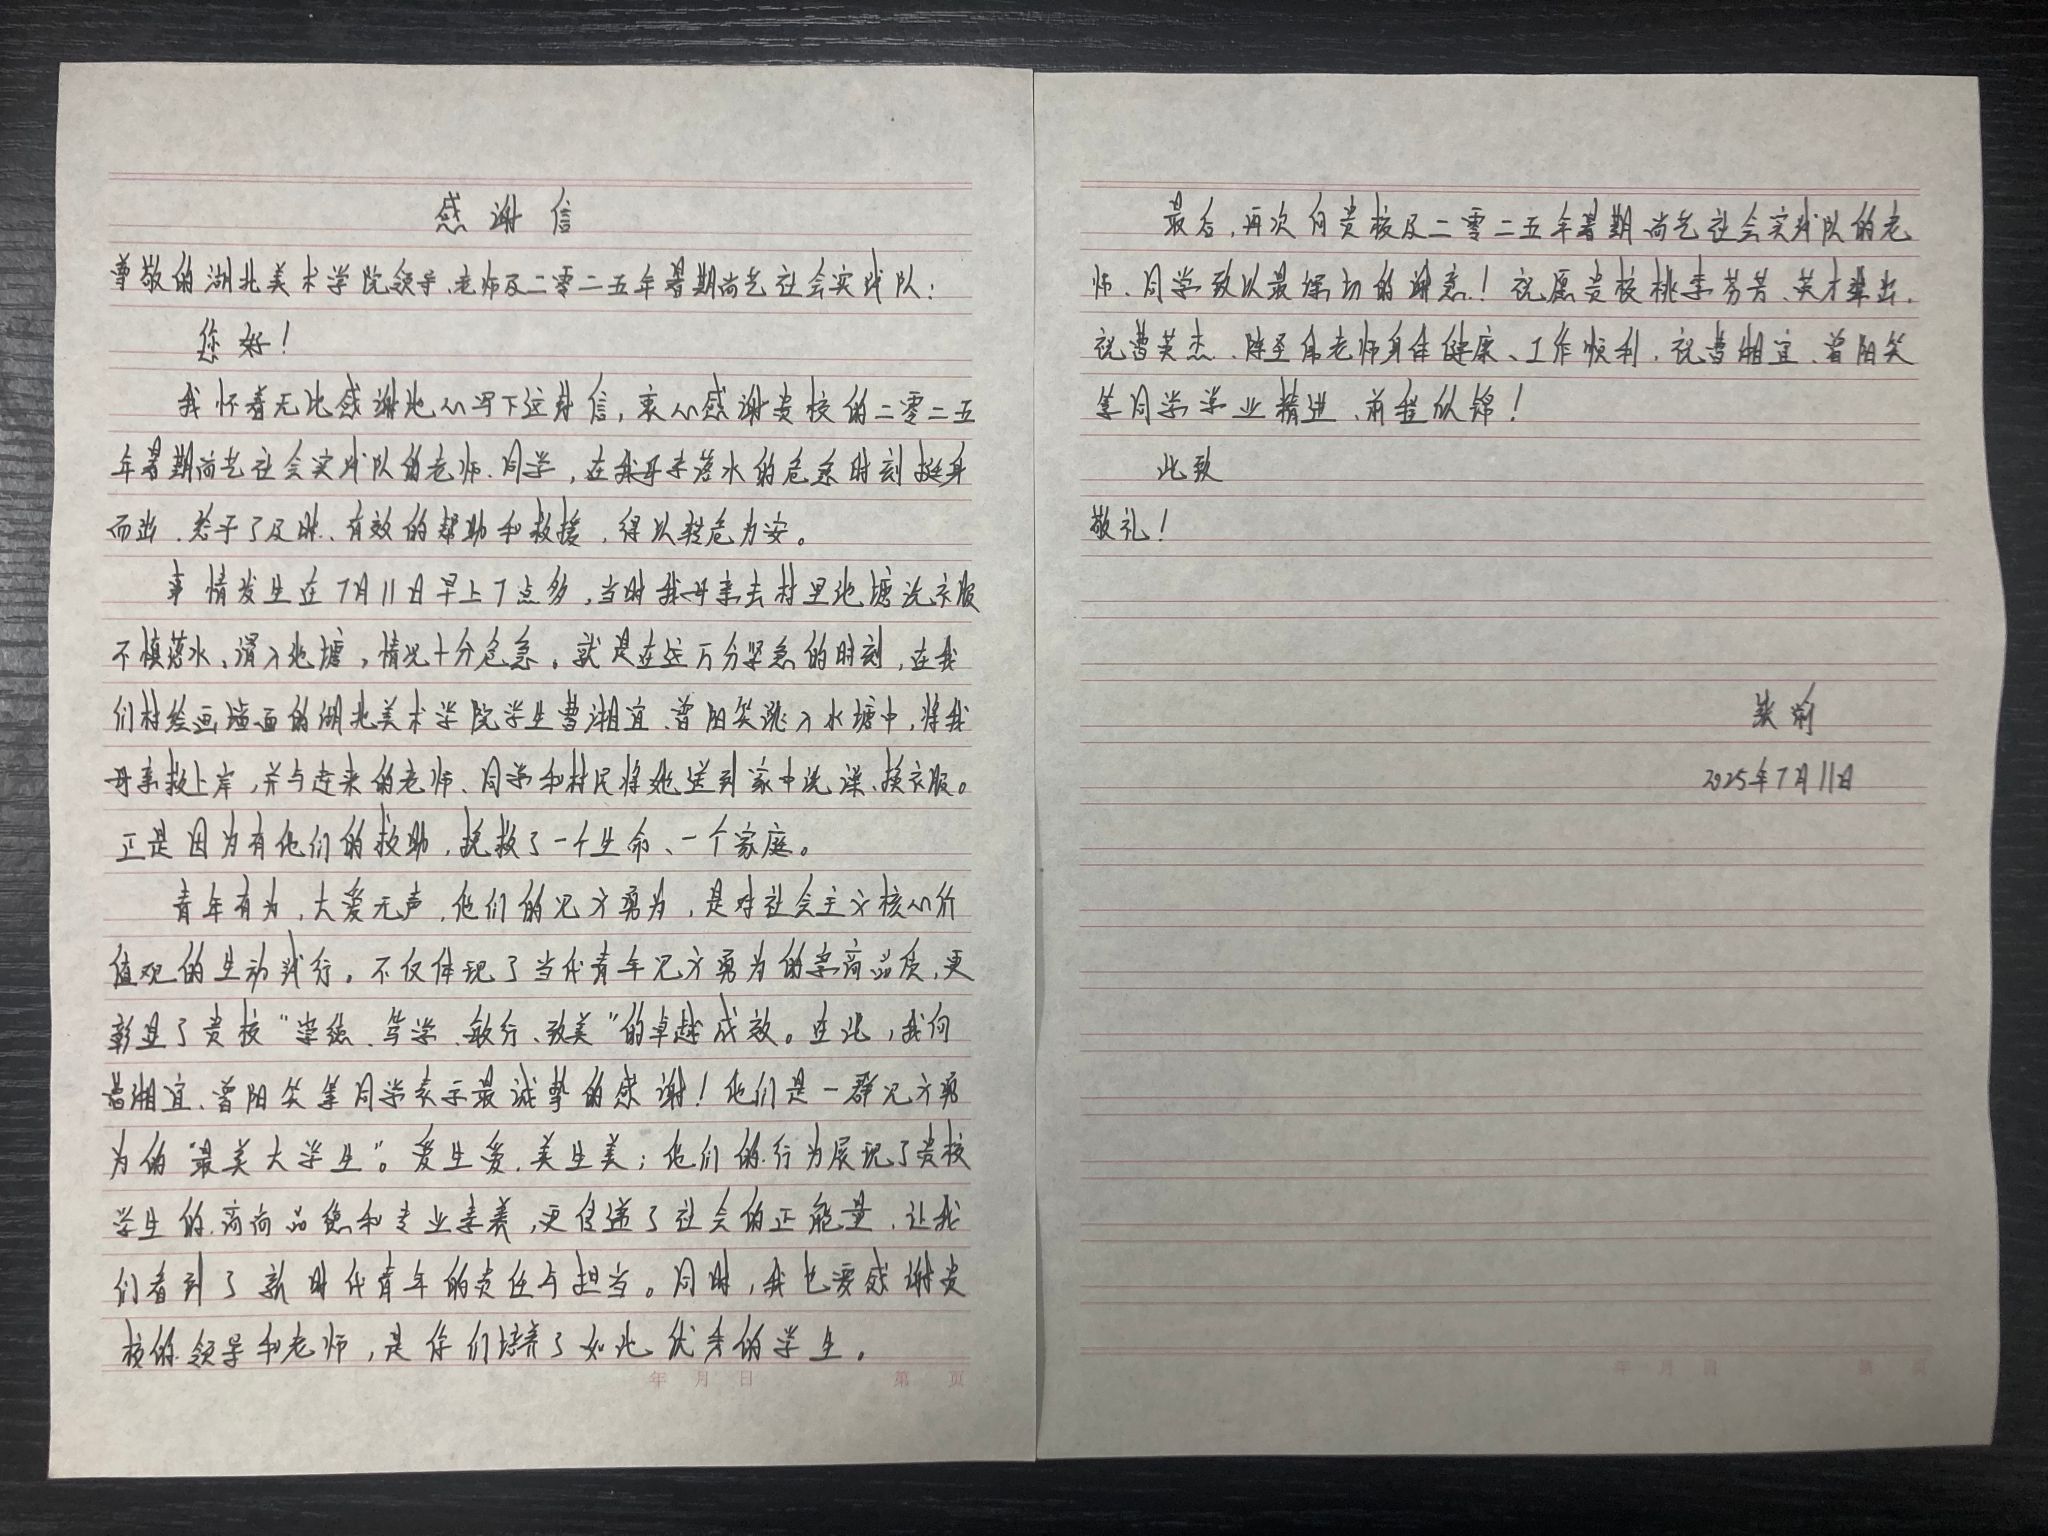 感谢信
尊敬的湖北美术学院领导、老师及二零二五年暑期尚艺社会实践队：
您好！
我怀着无比感谢地心写下这封信，衷心感谢贵校的二零二五
年暑期尚艺社会实践队的老师、同学，在我母亲落水的危急时刻挺身
而出、给予了及时、有效的帮助和救援，得以转危为安。
事情发生在7月11日早上7点多，当时我母亲去村里池塘洗衣服
不慎落水、滑入池塘，情况十分危急。就是在这万分紧急的时刻，在我
们村绘画墙面的湖北美术学院学生曹湘宜、曾阳笑跳入水塘中，将我
母亲救上岸，并与赶来的老师、同学和村民将她送到家中洗澡、换衣服。
正是因为有他们的救助，挽救了一个生命、一个家庭。
青年有为，大爱无声，他们的见义勇为，是对社会主义核心价
值观的生动践行。不仅体现了当代青年见义勇为的崇高品质，更
彰显了贵校“崇德、笃学、敏行、致美”的卓越成效。在此，我向
曹湘宜、曾阳笑等同学表示最诚挚的感谢！他们是一群见义勇
为的“最美大学生”。爱生爱、美生美；他们的行为展现了贵校
学生的高尚品德和专业素养，更传递了社会的正能量，让我
们看到了新时代青年的责任与担当。同时，我也要感谢贵
校的领导和老师，是你们培养了如此优秀的学生。
年 月 日 第 页
最后，再次向贵校及二零二五年暑期尚艺社会实践队的老
师、同学致以最深切的谢意！祝愿贵校桃李芬芳、英才辈出，
祝曹英杰、陈圣伟老师身体健康、工作顺利，祝曹湘宜、曾阳笑
等同学学业精进、前程似锦！
此致
敬礼！
2025年7月11日